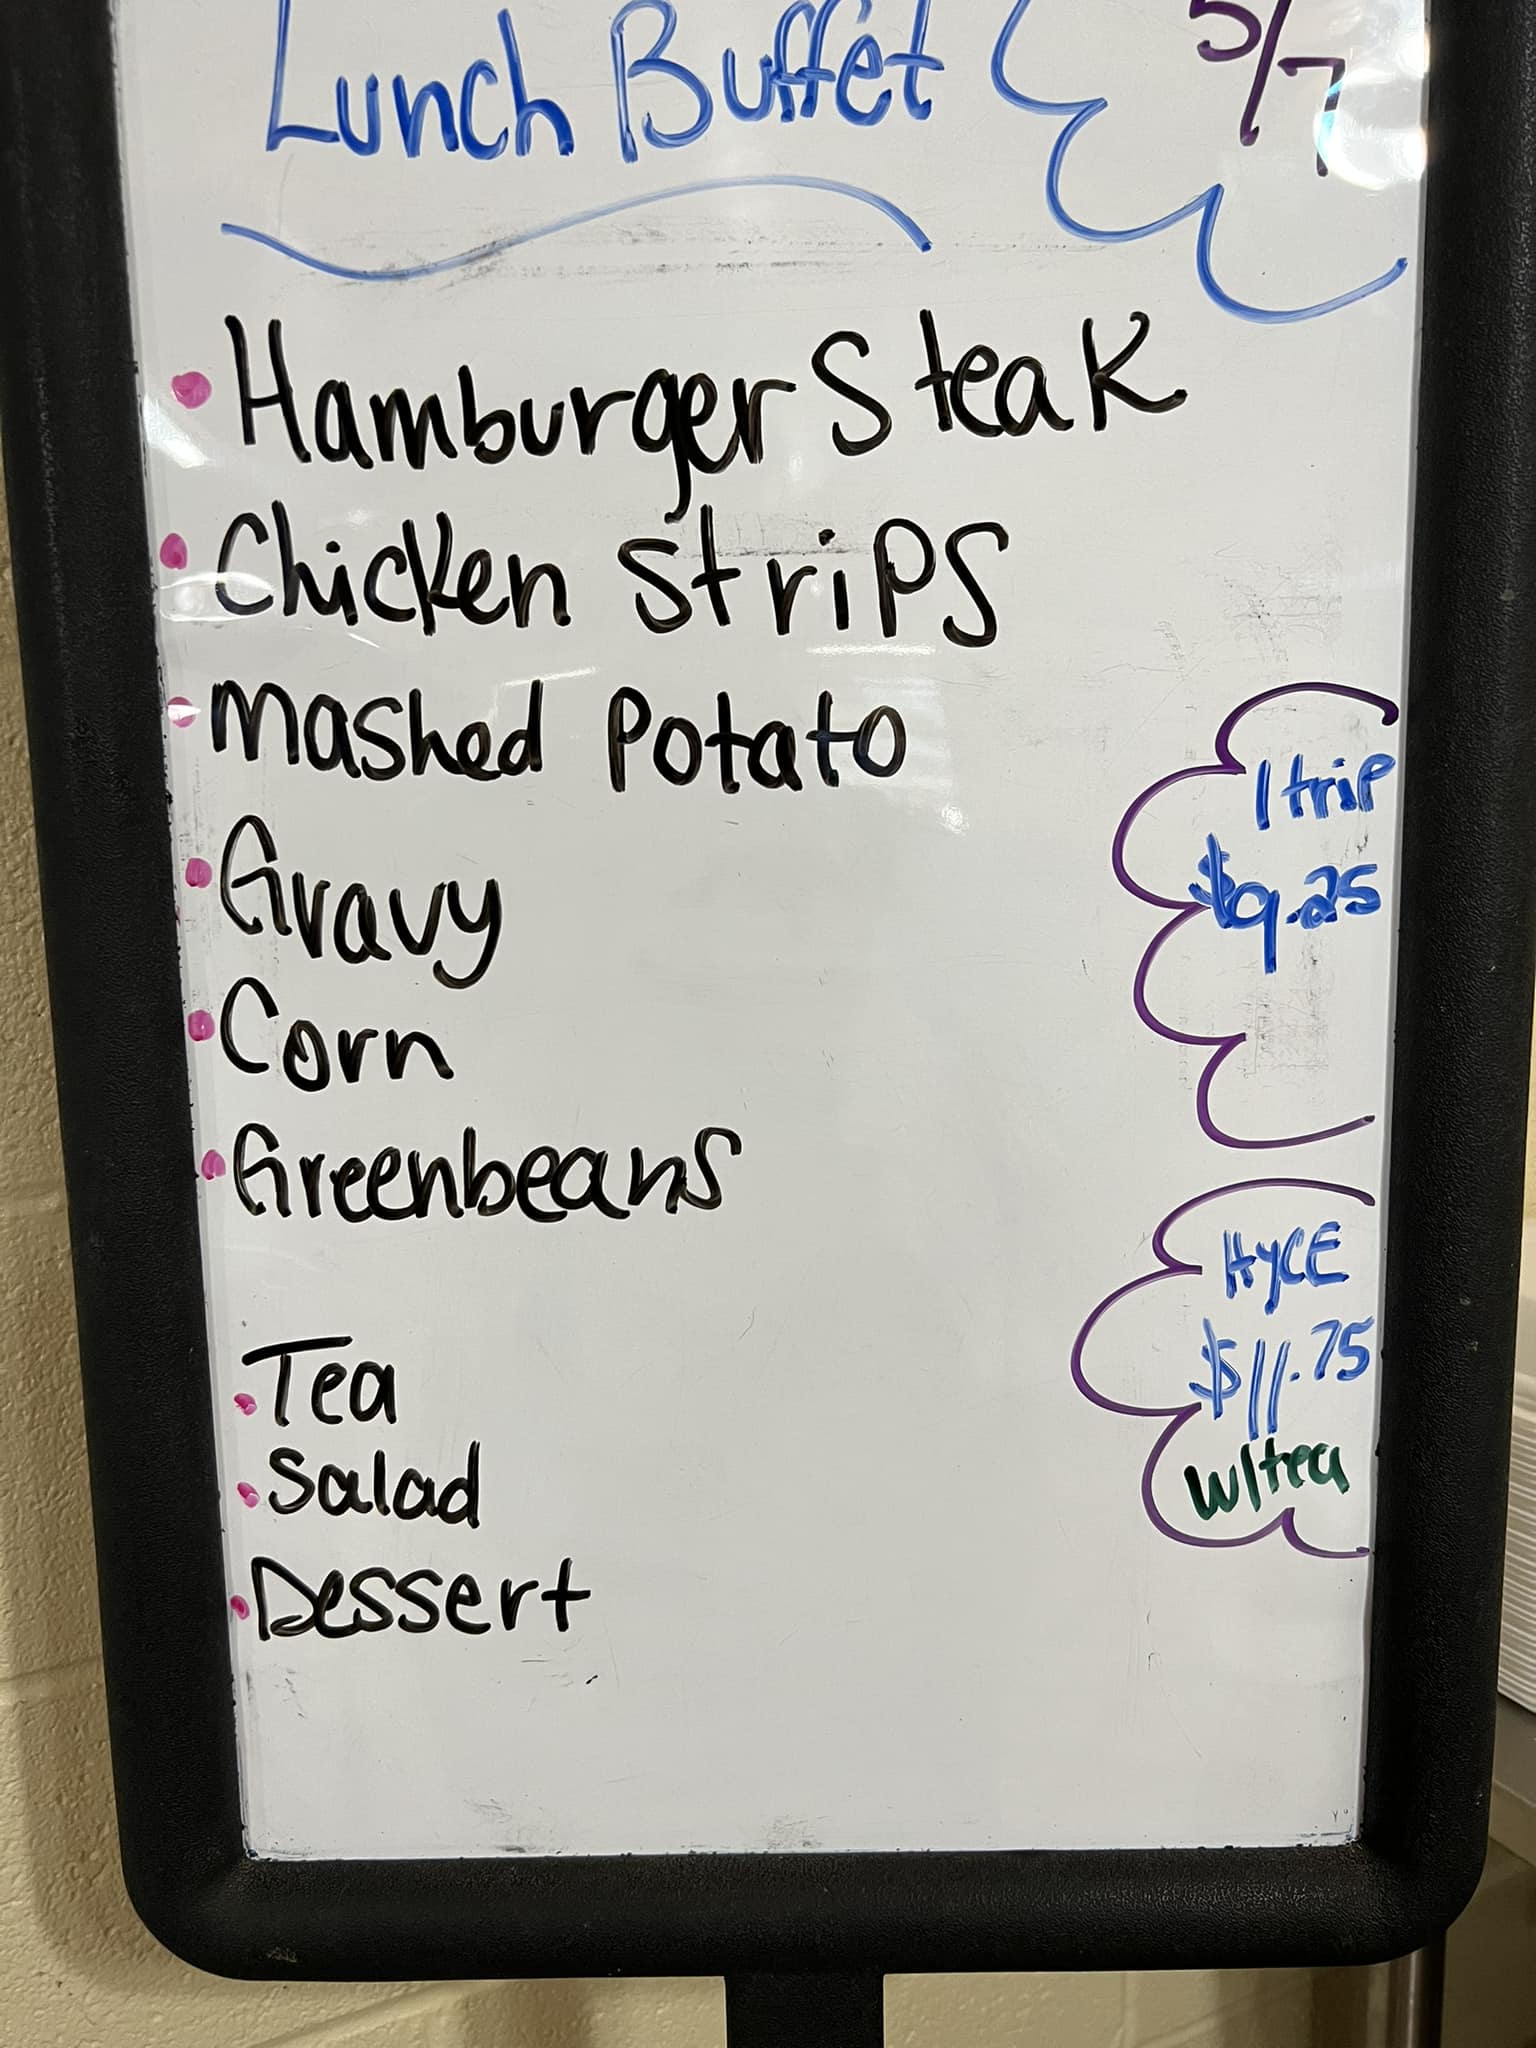 Lunch Buffet
5/7
• Hamburger Steak
• Chicken Strips
• Mashed Potato
• Gravy
• Corn
• Greenbeans
1 trip
$9.25
AYCE
$11.75
w/tea
• Tea
• Salad
• Dessert